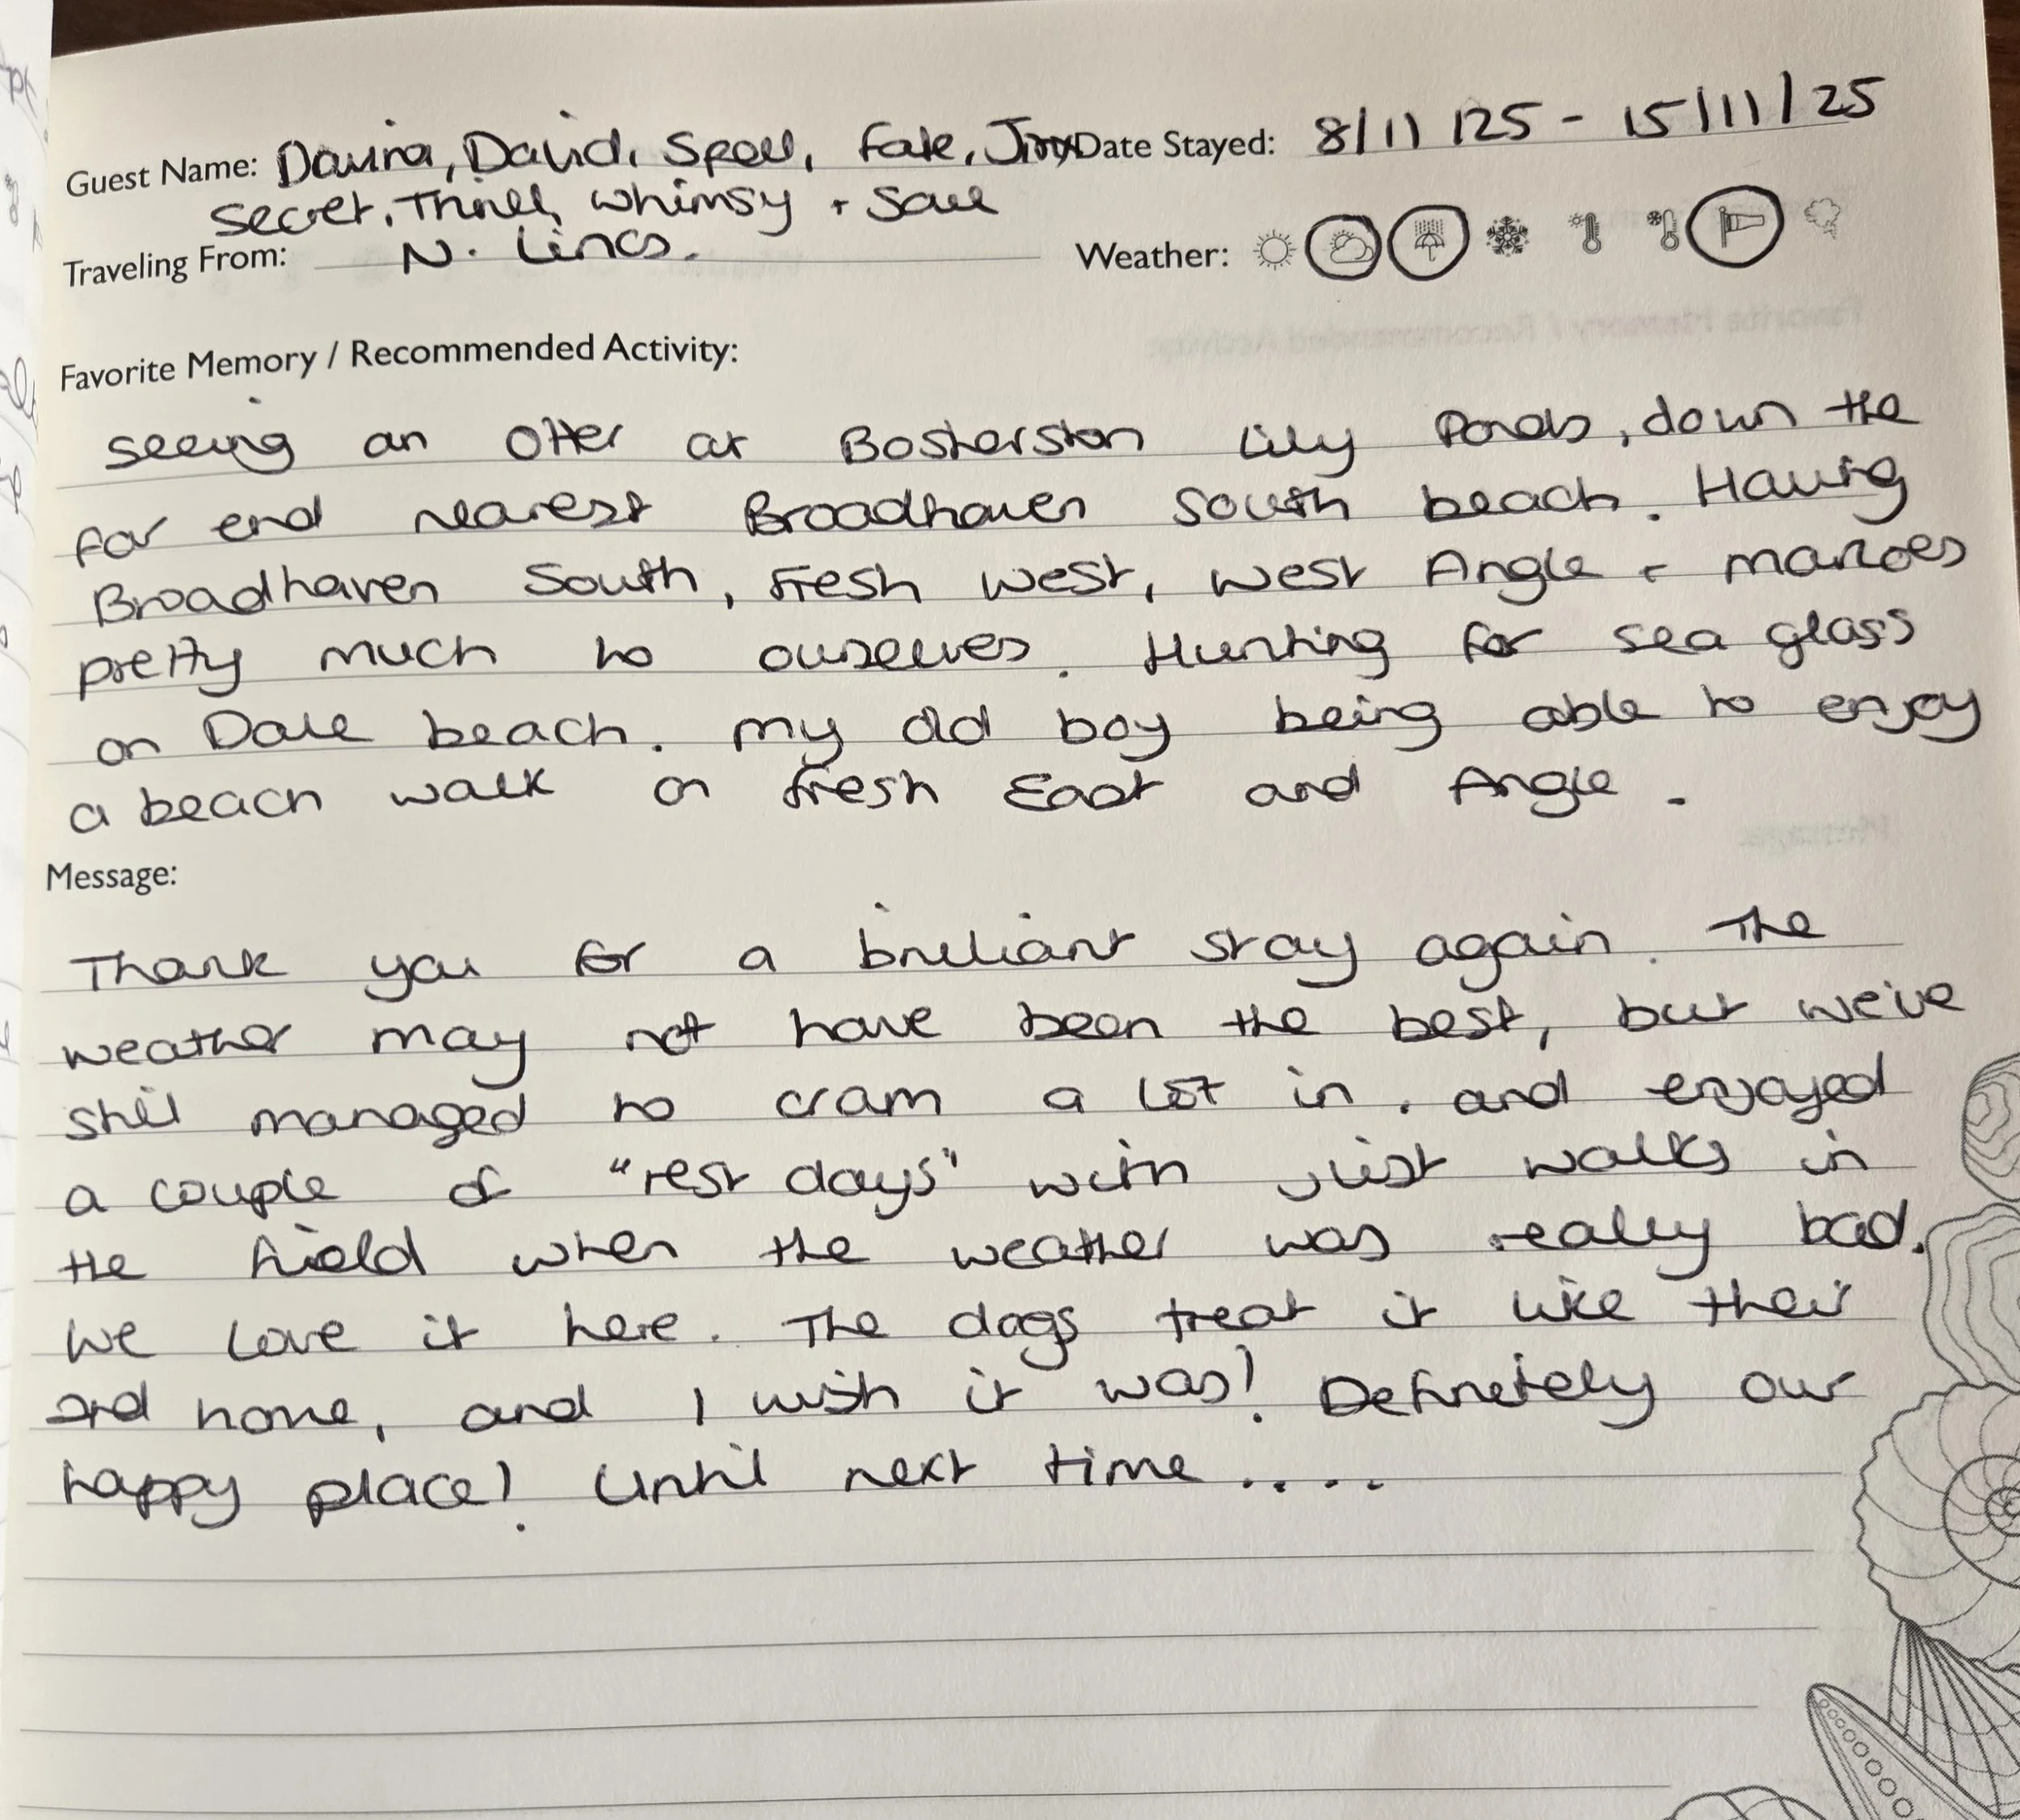 Guest Name: Davina, David, Spell, Fate, Jinx Date Stayed: 8/11/25 - 15/11/25
Secret, Thrill, Whimsy + Soul
Traveling From: N. Lincs. Weather:
Favorite Memory / Recommended Activity:
Seeing an otter at Bosherston Lily Ponds, down the
far end nearest Broadhaven South beach. Having
Broadhaven South, Fresh West, West Angle + Marloes
pretty much to ourselves. Hunting for sea glass
on Dale beach. My old boy being able to enjoy
a beach walk on Fresh East and Angle.
Message:
Thank you for a brilliant stay again. The
weather may not have been the best, but we've
still managed to cram a lot in, and enjoyed
a couple of "rest days" with just walks in
the field when the weather was really bad.
We love it here. The dogs treat it like their
2nd home, and I wish it was! Definetely our
happy place! Until next time ....